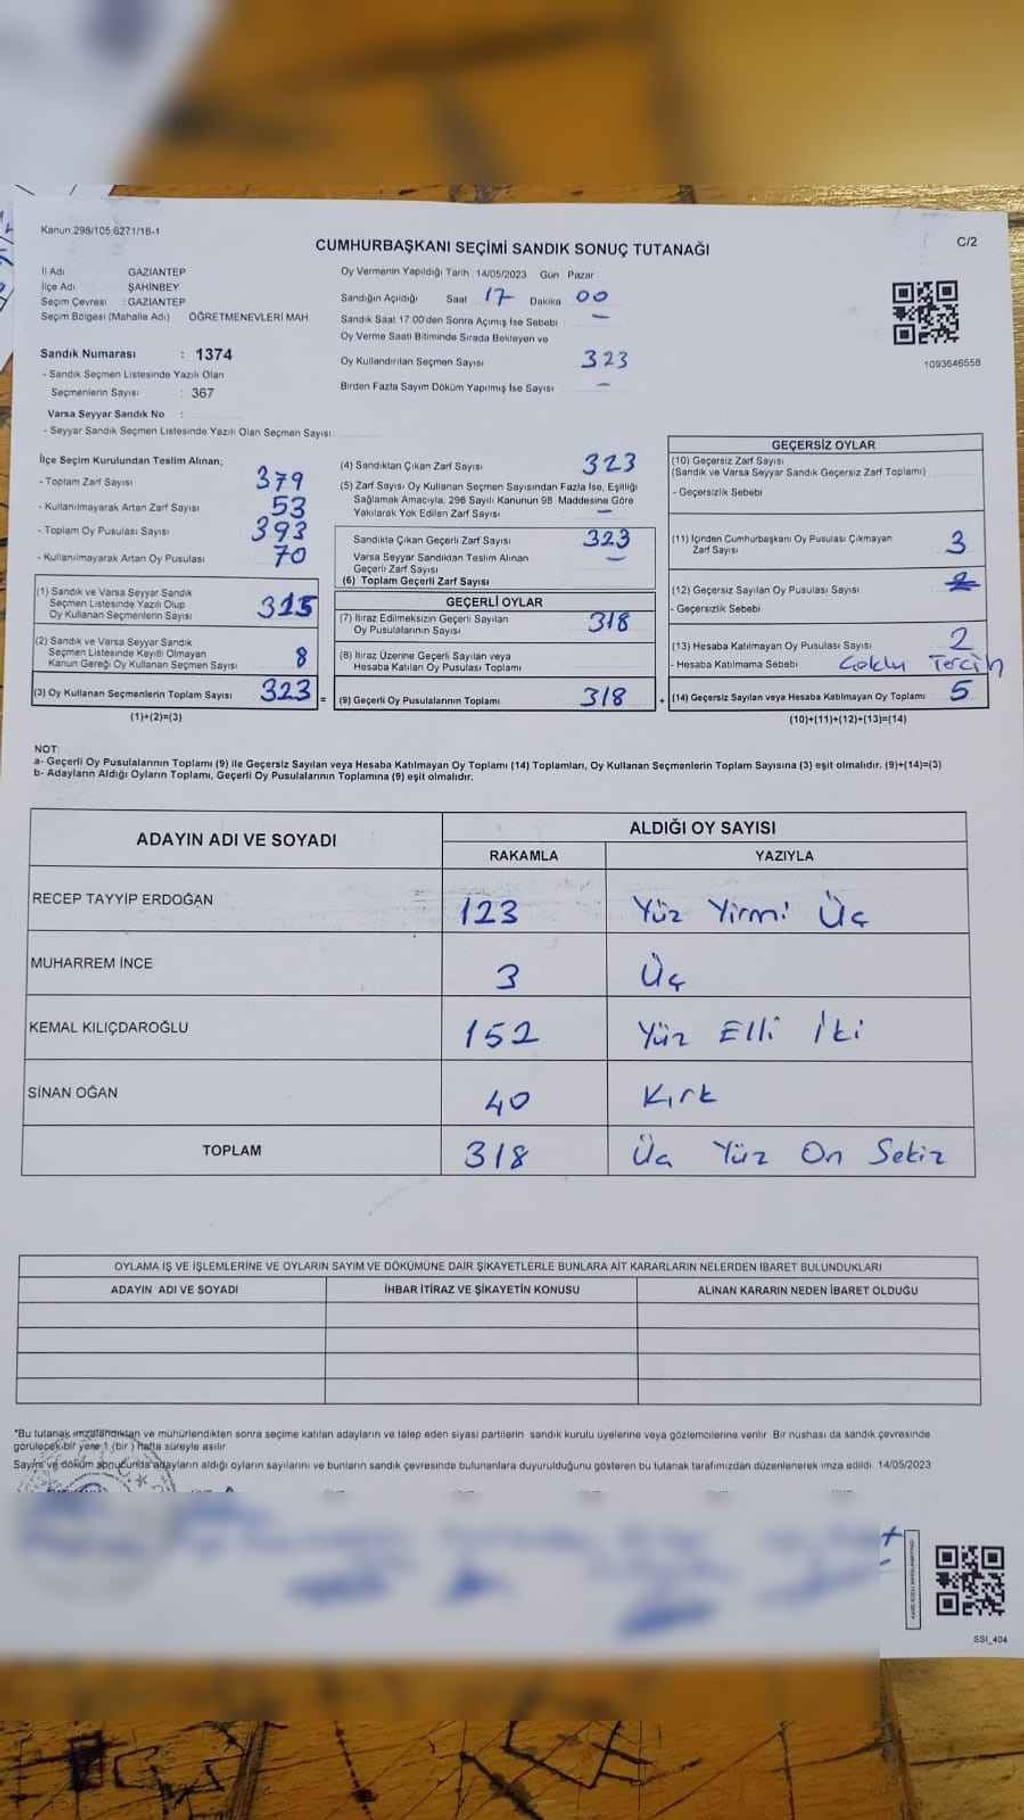 Kanun 298/105 6271/16-1
CUMHURBAŞKANI SEÇİMİ SANDIK SONUÇ TUTANAĞI
C/2
İl Adı GAZİANTEP
İlçe Adı ŞAHİNBEY
Seçim Çevresi : GAZİANTEP
Seçim Bölgesi (Mahalle Adı) ÖĞRETMENEVLERİ MAH
Sandık Numarası : 1374
- Sandık Seçmen Listesinde Yazılı Olan
Seçmenlerin Sayısı : 367
Varsa Seyyar Sandık No :
- Seyyar Sandık Seçmen Listesinde Yazılı Olan Seçmen Sayısı:
Oy Vermenin Yapıldığı Tarih 14/05/2023 Gün Pazar
Sandığın Açıldığı Saat 17 Dakika 00
Sandık Saat 17:00'den Sonra Açılmış İse Sebebi –
Oy Verme Saati Bitiminde Sırada Bekleyen ve
Oy Kullandırılan Seçmen Sayısı 323
Birden Fazla Sayım Döküm Yapılmış İse Sayısı –
1093646558
İlçe Seçim Kurulundan Teslim Alınan;
- Toplam Zarf Sayısı 379
- Kullanılmayarak Artan Zarf Sayısı 53
- Toplam Oy Pusulası Sayısı 393
- Kullanılmayarak Artan Oy Pusulası 70
(1) Sandık ve Varsa Seyyar Sandık
Seçmen Listesinde Yazılı Olup
Oy Kullanan Seçmenlerin Sayısı 315
(2) Sandık ve Varsa Seyyar Sandık
Seçmen Listesinde Kayıtlı Olmayan
Kanun Gereği Oy Kullanan Seçmen Sayısı 8
(3) Oy Kullanan Seçmenlerin Toplam Sayısı 323 =
(1)+(2)=(3)
(4) Sandıktan Çıkan Zarf Sayısı 323
(5) Zarf Sayısı Oy Kullanan Seçmen Sayısından Fazla İse, Eşitliği
Sağlamak Amacıyla, 298 Sayılı Kanunun 98. Maddesine Göre
Yakılarak Yok Edilen Zarf Sayısı –
Sandıkta Çıkan Geçerli Zarf Sayısı 323
Varsa Seyyar Sandıktan Teslim Alınan
Geçerli Zarf Sayısı –
(6) Toplam Geçerli Zarf Sayısı
GEÇERLİ OYLAR
(7) İtiraz Edilmeksizin Geçerli Sayılan
Oy Pusulalarının Sayısı 318
(8) İtiraz Üzerine Geçerli Sayılan veya
Hesaba Katılan Oy Pusulası Toplamı
(9) Geçerli Oy Pusulalarının Toplamı 318 +
GEÇERSİZ OYLAR
(10) Geçersiz Zarf Sayısı
(Sandık ve Varsa Seyyar Sandık Geçersiz Zarf Toplamı)
- Geçersizlik Sebebi
(11) İçinden Cumhurbaşkanı Oy Pusulası Çıkmayan
Zarf Sayısı 3
(12) Geçersiz Sayılan Oy Pusulası Sayısı
- Geçersizlik Sebebi
(13) Hesaba Katılmayan Oy Pusulası Sayısı 2
- Hesaba Katılmama Sebebi Çoklu Tercih
(14) Geçersiz Sayılan veya Hesaba Katılmayan Oy Toplamı 5
(10)+(11)+(12)+(13)=(14)
NOT:
a- Geçerli Oy Pusulalarının Toplamı (9) ile Geçersiz Sayılan veya Hesaba Katılmayan Oy Toplamı (14) Toplamları, Oy Kullanan Seçmenlerin Toplam Sayısına (3) eşit olmalıdır. (9)+(14)=(3)
b- Adayların Aldığı Oyların Toplamı, Geçerli Oy Pusulalarının Toplamına (9) eşit olmalıdır.
ADAYIN ADI VE SOYADI ALDIĞI OY SAYISI
RAKAMLA YAZIYLA
RECEP TAYYİP ERDOĞAN 123 Yüz Yirmi Üç
MUHARREM İNCE 3 Üç
KEMAL KILIÇDAROĞLU 152 Yüz Elli İki
SİNAN OĞAN 40 Kırk
TOPLAM 318 Üç Yüz On Sekiz
OYLAMA İŞ VE İŞLEMLERİNE VE OYLARIN SAYIM VE DÖKÜMÜNE DAİR ŞİKAYETLERLE BUNLARA AİT KARARLARIN NELERDEN İBARET BULUNDUKLARI
ADAYIN ADI VE SOYADI İHBAR İTİRAZ VE ŞİKAYETİN KONUSU ALINAN KARARIN NEDEN İBARET OLDUĞU
*Bu tutanak imzalandıktan ve mühürlendikten sonra seçime katılan adayların ve talep eden siyasi partilerin sandık kurulu üyelerine veya gözlemcilerine verilir. Bir nüshası da sandık çevresinde
görülecek bir yere 1 (bir) hafta süreyle asılır.
Sayım ve döküm sonucunda adayların aldığı oyların sayılarını ve bunların sandık çevresinde bulunanlara duyurulduğunu gösteren bu tutanak tarafımızdan düzenlenerek imza edildi. 14/05/2023
SSI_404